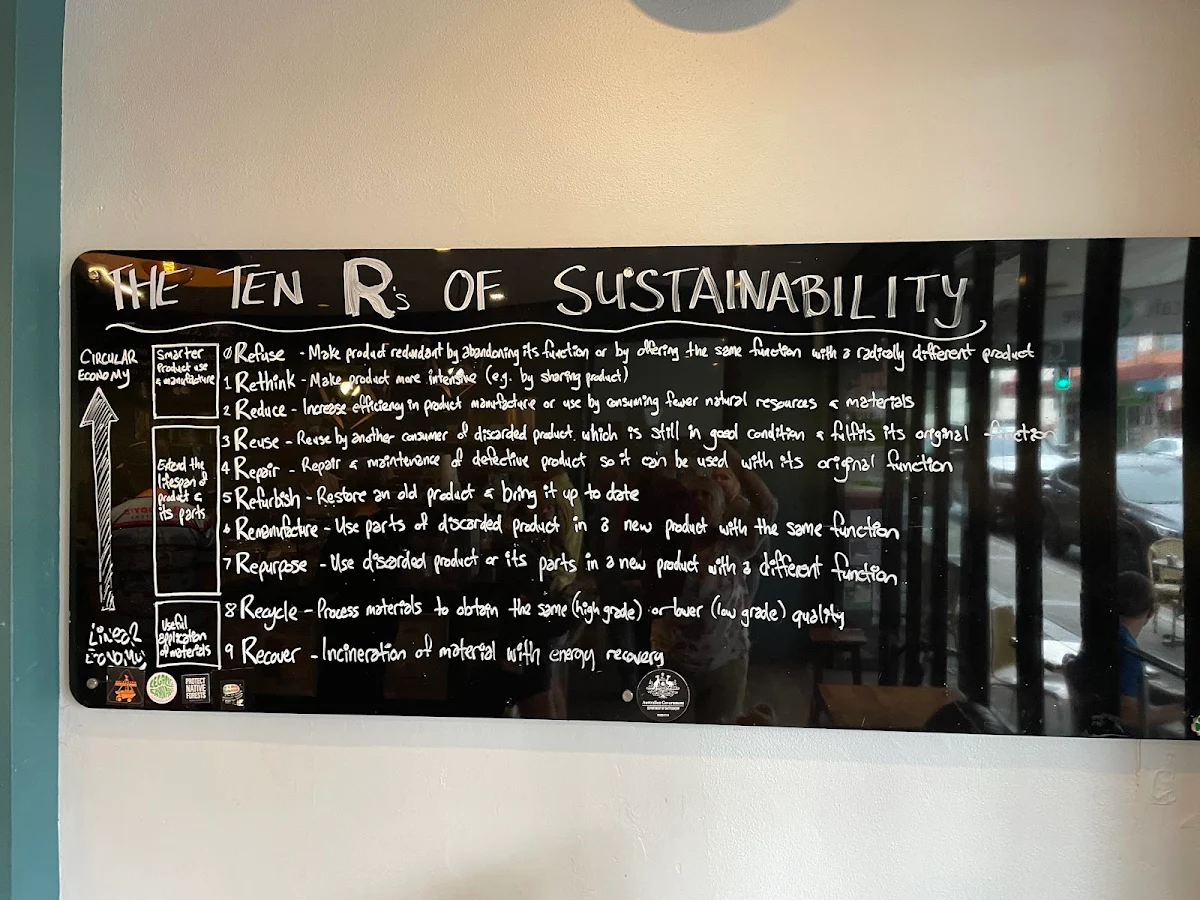 THE TEN R's OF SUSTAINABILITY
CIRCULAR
ECONOMY
Smarter
Product use
& manufacture
0 Refuse - Make product redundant by abandoning its function or by offering the same function with a radically different product
1 Rethink - Make product more intensive (e.g. by sharing product)
2 Reduce - Increase efficiency in product manufacture or use by consuming fewer natural resources & materials
Extend the
lifespan of
product &
its parts
3 Reuse - Reuse by another consumer of discarded product, which is still in good condition & fulfils its original function
4 Repair - Repair & maintenance of defective product so it can be used with its original function
5 Refurbish - Restore an old product & bring it up to date
6 Remanufacture - Use parts of discarded product in a new product with the same function
7 Repurpose - Use discarded product or its parts in a new product with a different function
LINEAR
ECONOMY
Useful
application
of materials
8 Recycle - Process materials to obtain the same (high grade) or lower (low grade) quality
9 Recover - Incineration of material with energy recovery
PROTECT
NATIVE
FORESTS
Australian Government